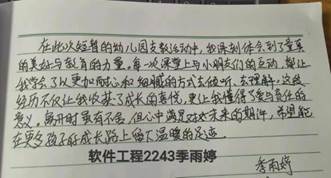 在此次短暂的幼儿园支教活动中，我深刻体会到了童真
的美好与教育的力量。每一次课堂上与小朋友们的互动，都让
我学会了以更加耐心和细腻的方式去倾听、去理解。这段
经历不仅让我收获了成长的喜悦，更让我懂得了爱与责任的
意义。离开时虽有不舍，但心中满是对未来的期许，希望能
在更多孩子的成长路上留下温暖的足迹。
软件工程2243季雨婷
季雨婷